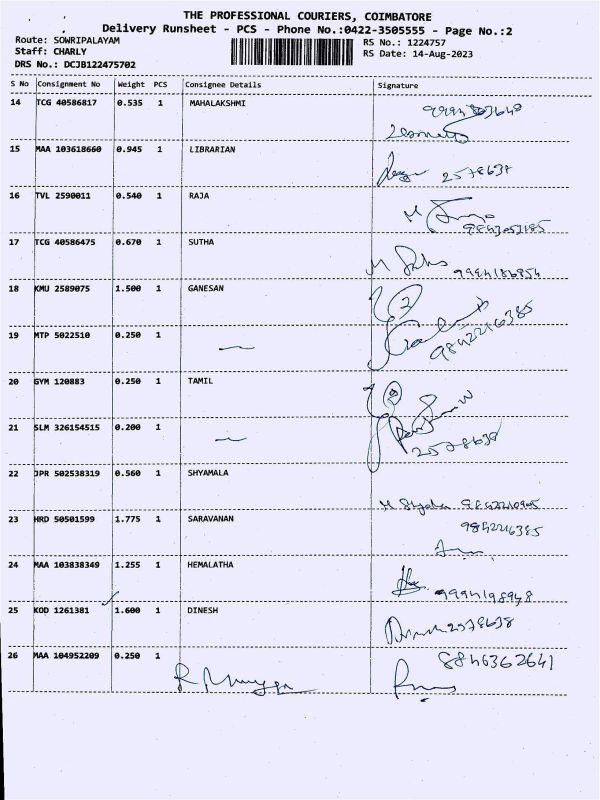 THE PROFESSIONAL COURIERS, COIMBATORE
Delivery Runsheet - PCS - Phone No.:0422-3505555 - Page No.:2
Route: SOWRIPALAYAM
RS No.: 1224757
Staff: CHARLY
RS Date: 14-Aug-2023
DRS No.: DCJB122475702
S No Consignment No Weight PCS Consignee Details Signature
14 TCG 40586817 0.535 1 MAHALAKSHMI
15 MAA 103618660 0.945 1 LIBRARIAN
2578637
16 TVL 2590011 0.540 1 RAJA
M
9843053185
17 TCG 40586475 0.670 1 SUTHA
M
9994186854
18 KMU 2589075 1.500 1 GANESAN
9842216385
19 MTP 5022510 0.250 1
20 GYM 120883 0.250 1 TAMIL
21 SLM 326154515 0.200 1
2578638
22 JPR 502538319 0.560 1 SHYAMALA
M
23 HRD 50501599 1.775 1 SARAVANAN
9842216385
24 MAA 103838349 1.255 1 HEMALATHA
9994198948
25 KOD 1261381 1.600 1 DINESH
2578638
26 MAA 104952209 0.250 1
8846362641